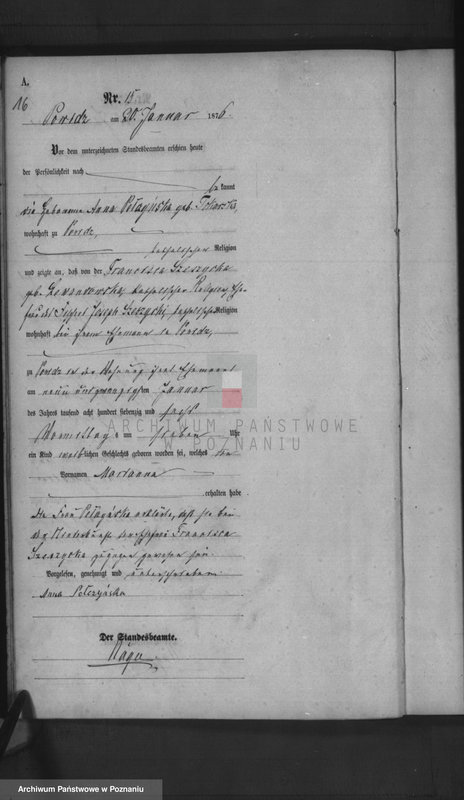 A.
16
Nr. 15.
Powidz am 20. Januar 1876.
Vor dem unterzeichneten Standesbeamten erschien heute
der Persönlichkeit nach
bekannt
die Hebamme Anna geb.
wohnhaft zu Powidz,
katholischer Religion
und zeigte an, daß von der Francisca Szeszycka
geb. Lewandowska, katholischer Religion, Ehe-
frau des Joseph Szeszycki, katholischer Religion
wohnhaft bei ihrem Ehemann in Powidz,
zu Powidz in der Wohnung ihres Ehemannes
am Januar
des Jahres tausend acht hundert siebenzig und sechs
Vormittag s um sieben Uhr
ein Kind weiblichen Geschlechts geboren worden sei, welches den
Vornamen Marianna
erhalten habe
die Frau erklärte, daß sie bei
der Niederkunft der Francisca
Szeszycka zugegen gewesen sei.
Vorgelesen, genehmigt und unterschrieben
Anna Pełczyńska
Der Standesbeamte.
ARCHIWUM PAŃSTWOWE
W POZNANIU
Archiwum Państwowe w Poznaniu